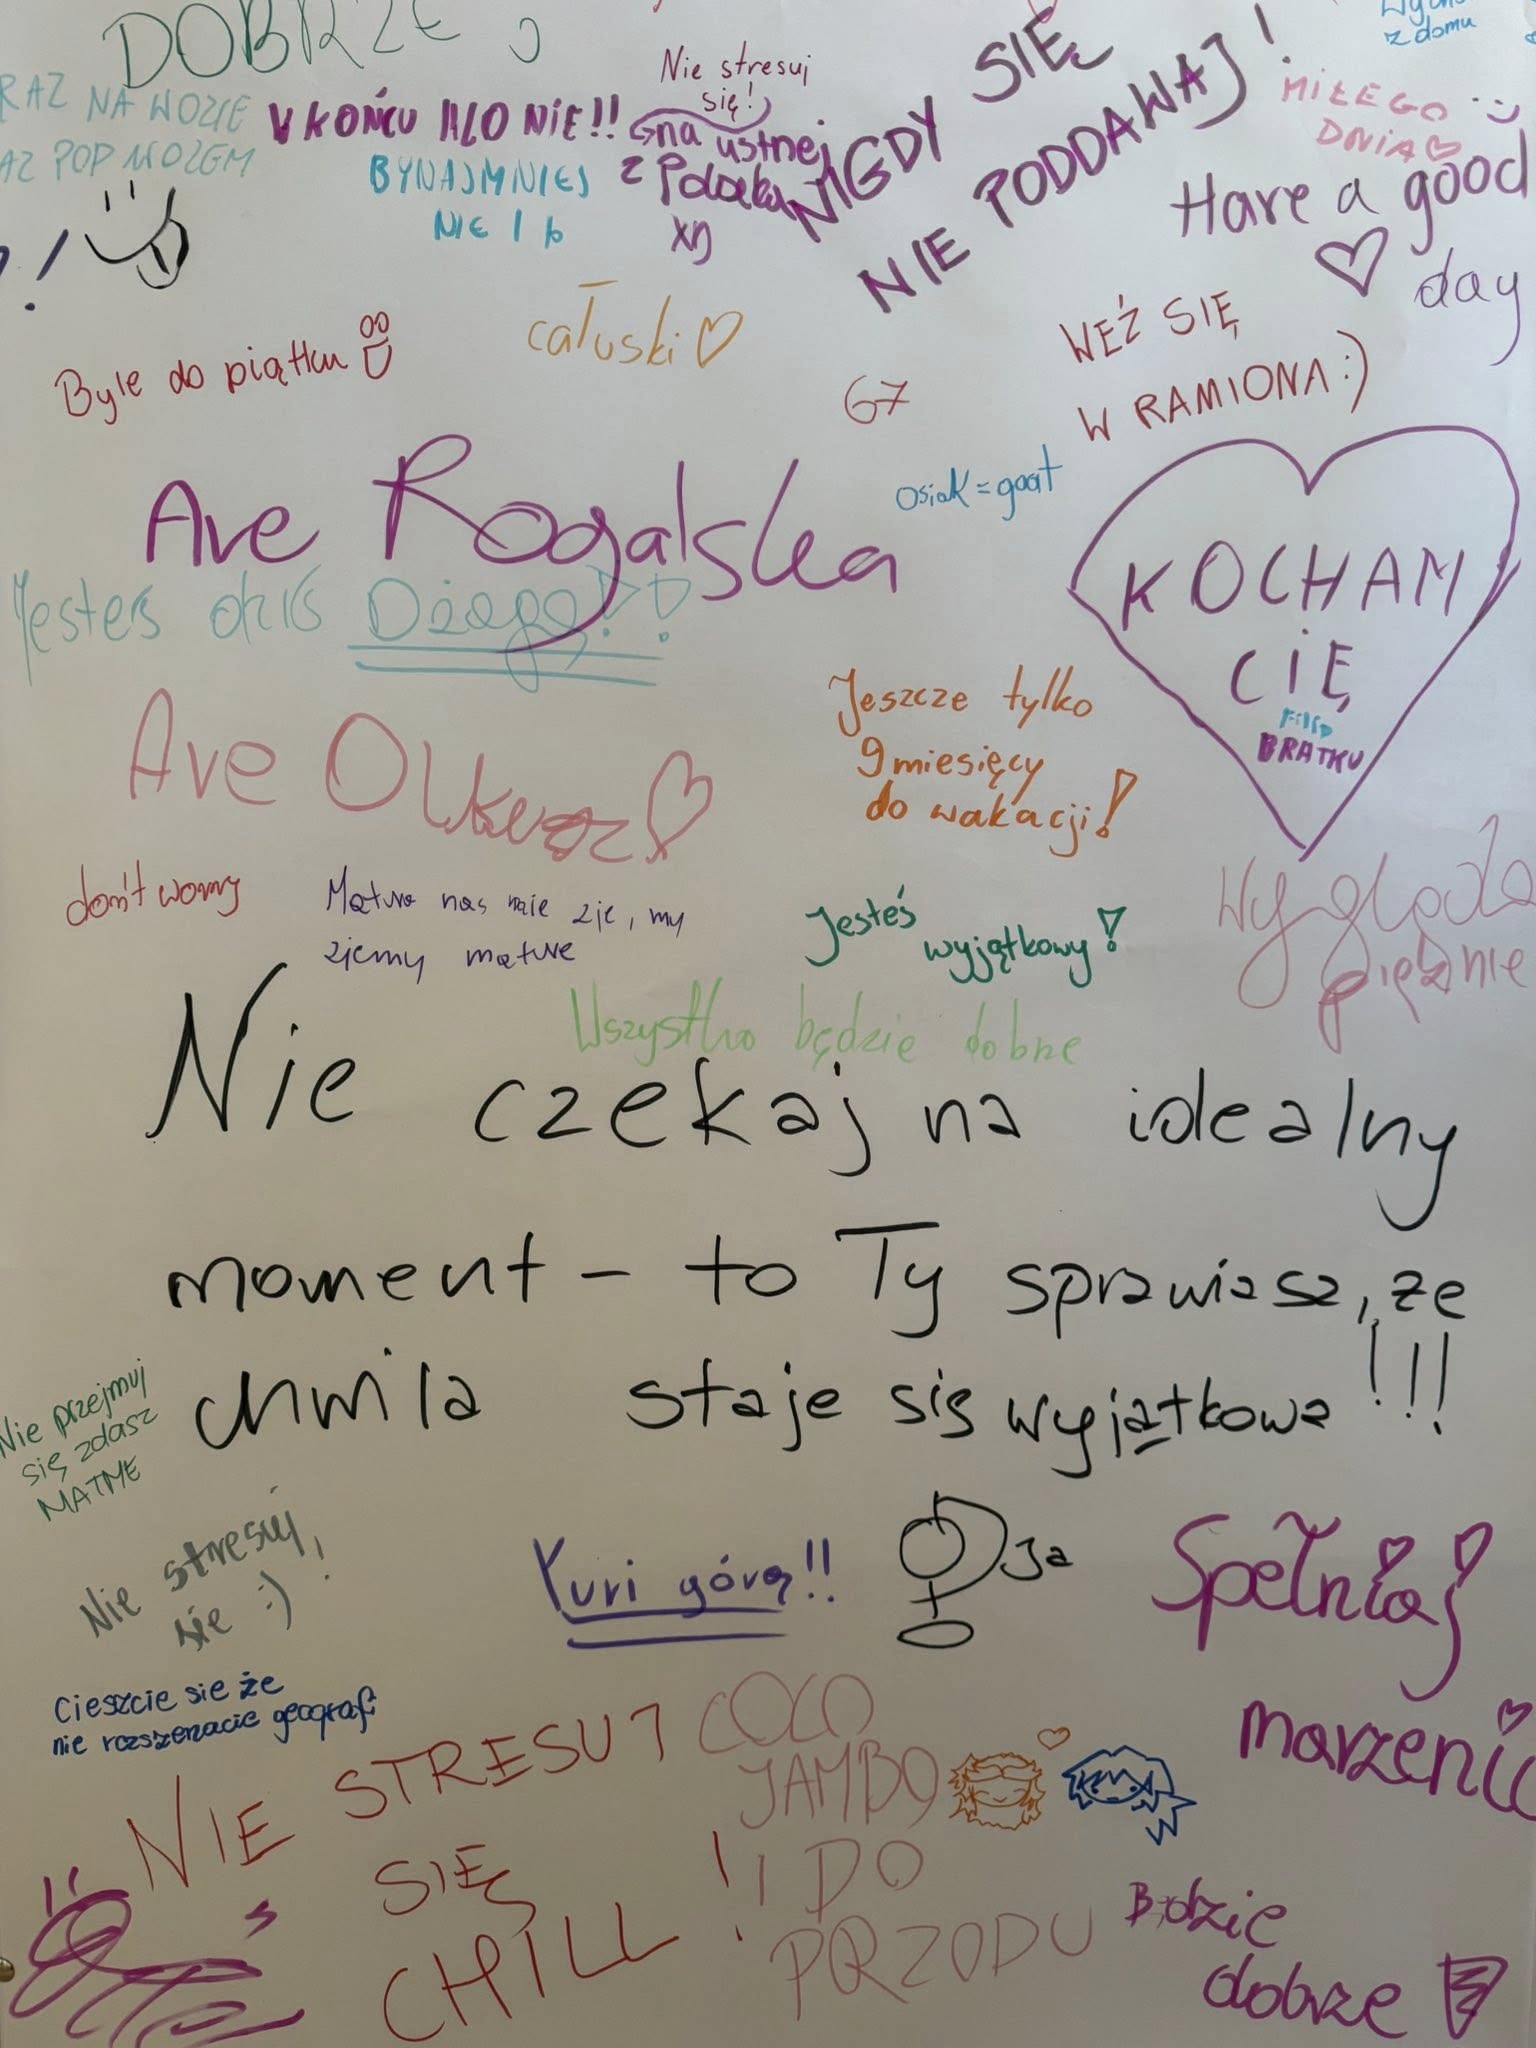 DOBRZE
Wycho
z domu
RAZ NA WOZIE
AZ POD WOZEM
W KOŃCU IILO NIE!!
BYNAJMNIEJ
NIE 1 b
Nie stresuj
się!
na ustnej
z Polaka
XD
NIGDY SIĘ
NIE PODDAWAJ!
MIŁEGO :)
DNIA
Have a good
day
Byle do piątku
całuski
67
WEŹ SIĘ
W RAMIONA :)
Osiak = goat
Ave Rogalska
Jesteś dziś
KOCHAM
CIĘ
FILIP
BRATKU
Ave
Jeszcze tylko
9 miesięcy
do wakacji!
don't worry
Matura nas nie zje, my
zjemy mature
Jesteś
wyjątkowy!
Wygląda
pięknie
Wszystko będzie dobrze
Nie czekaj na idealny
moment - to Ty sprawiasz, ze
chwila staje się wyjątkowa!!!
Nie przejmuj
się zdasz
MATME
Nie stresuj
się :) !
Yuri górą!!
Ja
Spełniaj
marzenia
Cieszcie sie że
nie rozszerzacie geografi
NIE STRESUJ
SIĘ
CHILL !
COCO
JAMBO
I DO
PRZODU
Bedzie
dobrze